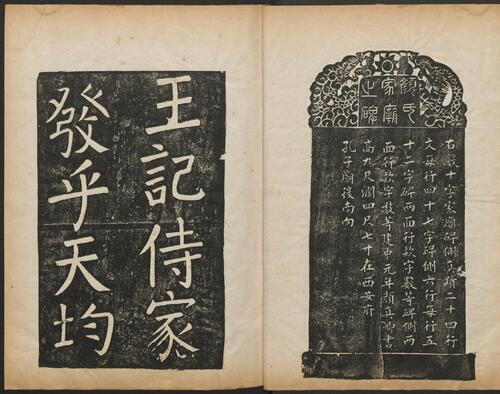 顏氏
家廟
之碑
右十字家廟碑側真跡二十四行
文每行四十七字碑側六行每行五
十二字碑兩面行款字數等碑側兩
面行款字數等建中元年顏真卿書
高九尺濶四尺七寸在西安府
孔子廟後南向
王記侍家
發乎天均